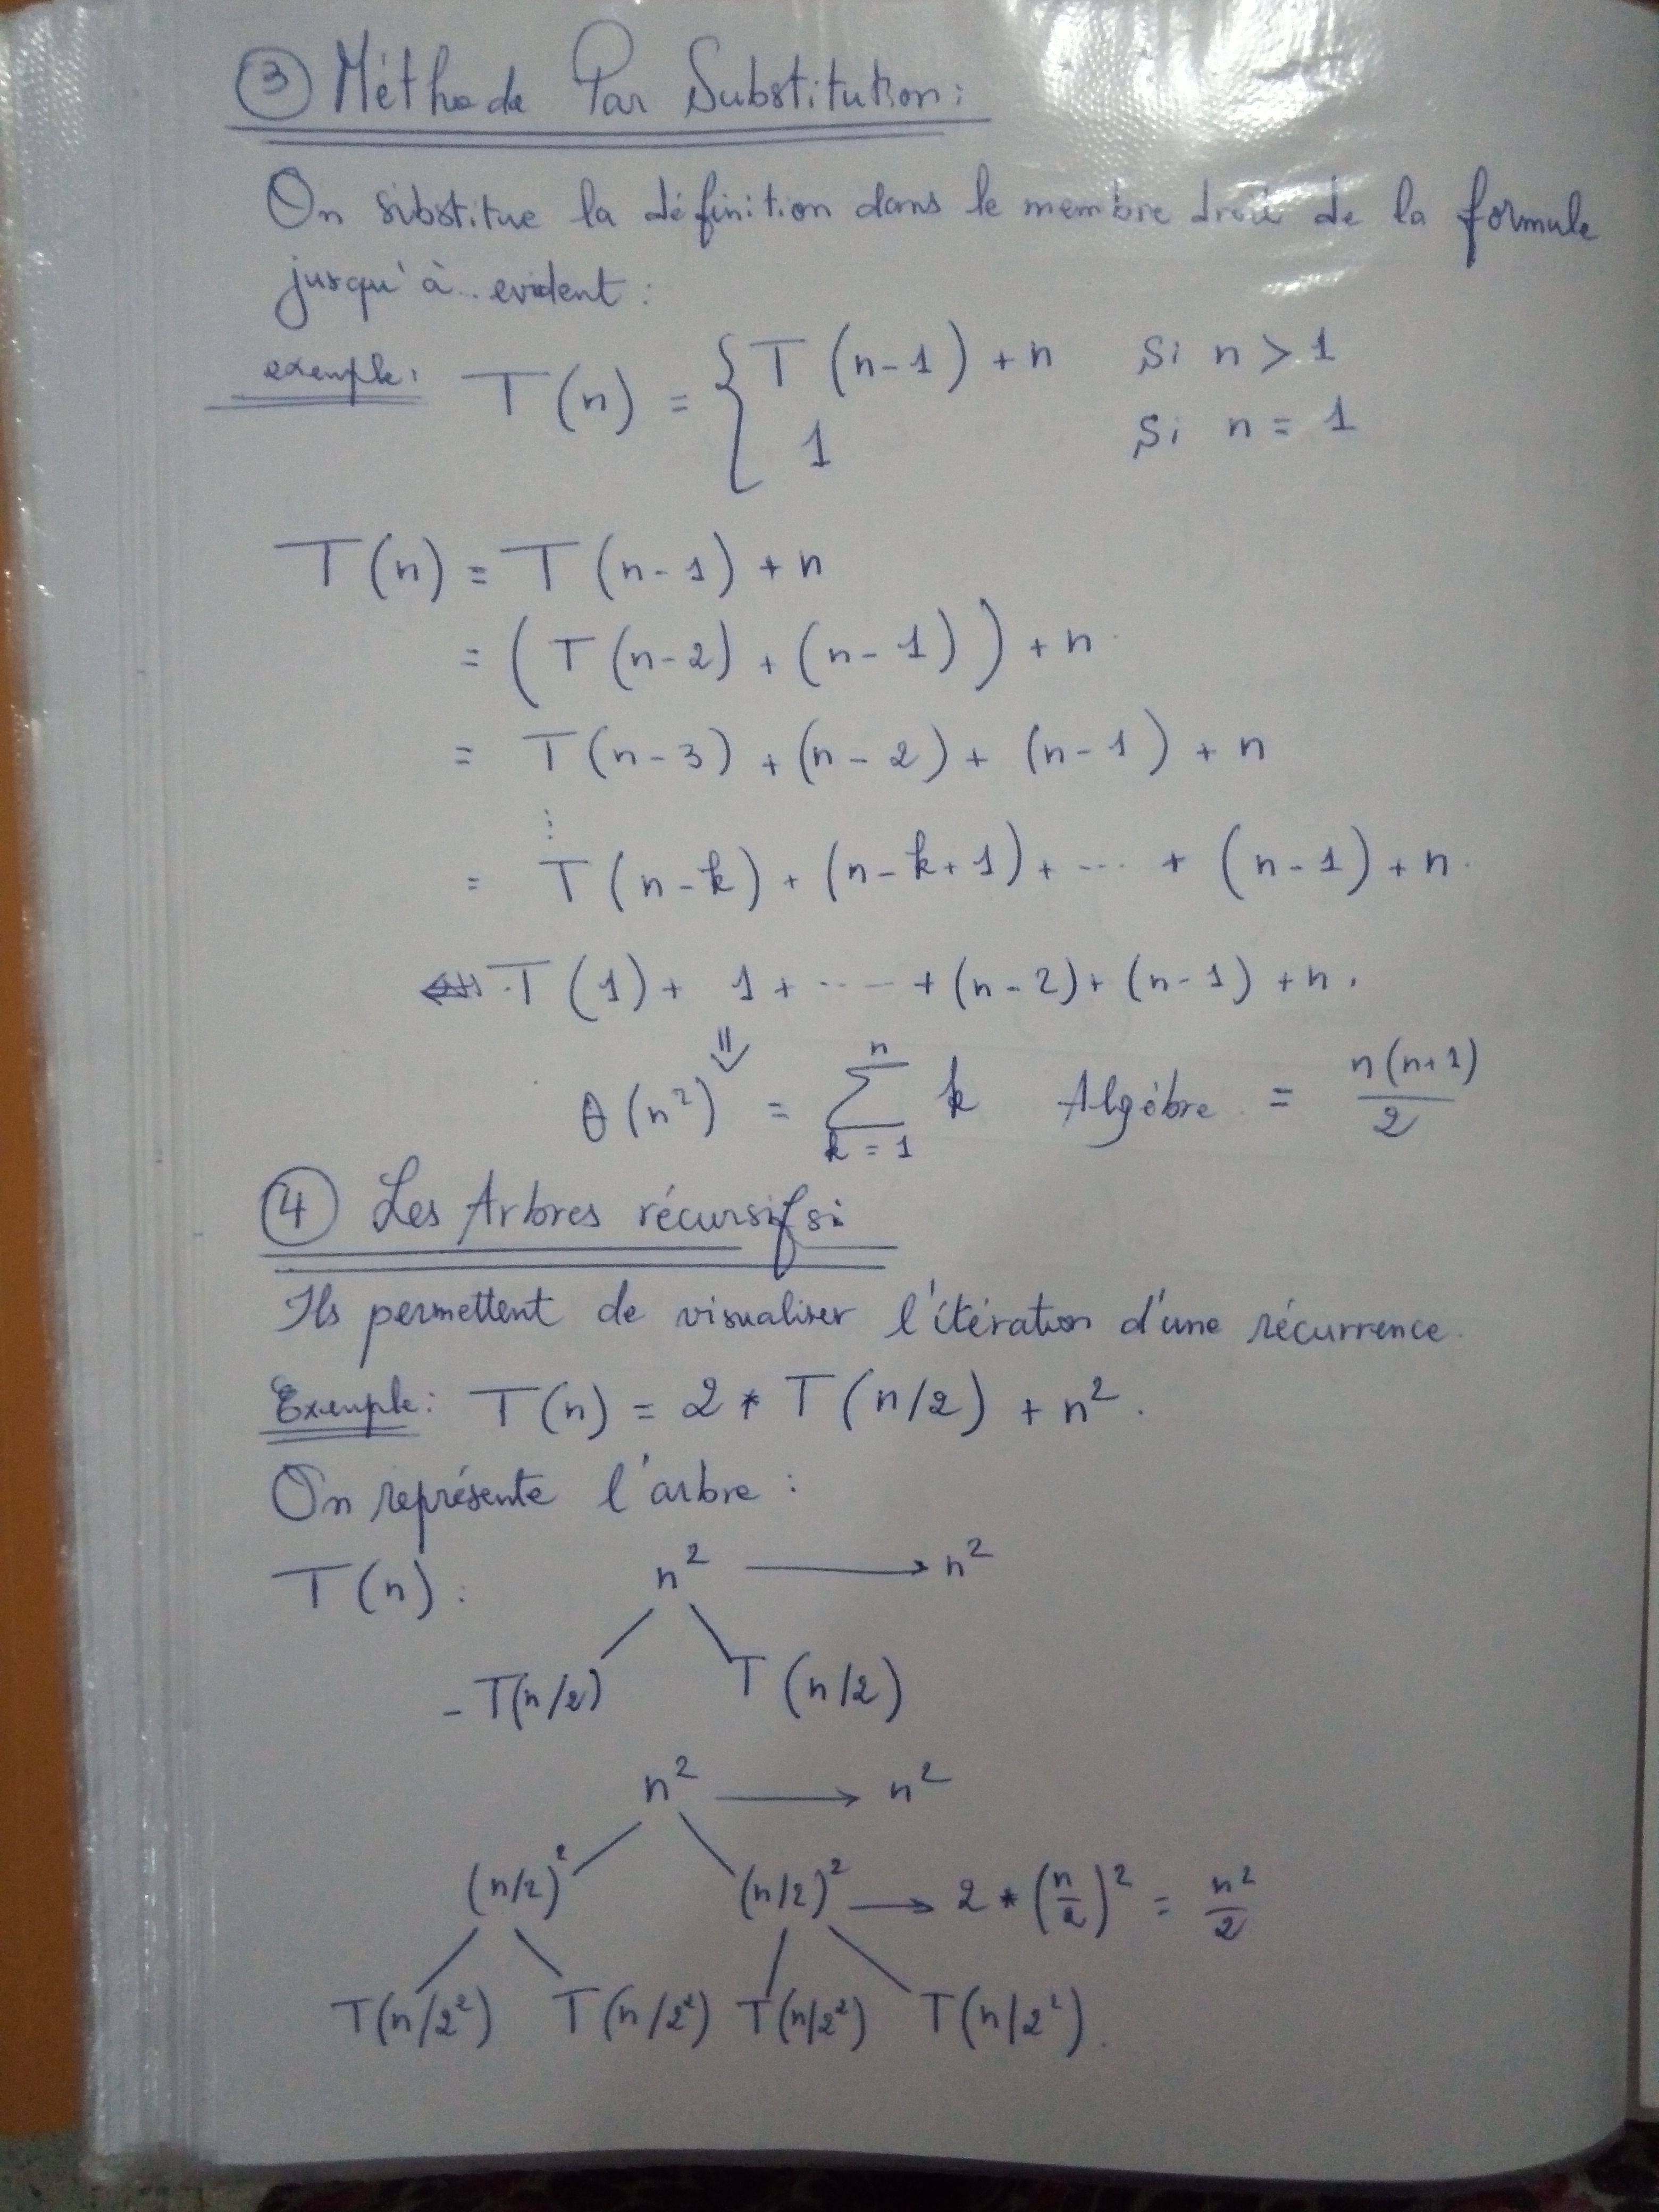 ③ Méthode Par Substitution:
On substitue la définition dans le membre droit de la formule
jusqu'à.. evident :
exemple: T(n) = { T(n-1) + n si n > 1
1 si n = 1
T(n) = T(n-1) + n
= (T(n-2) + (n-1)) + n.
= T(n-3) + (n-2) + (n-1) + n
⋮
= T(n-k) + (n-k+1) + ---- + (n-1) + n.
T(1) + 1 + ---- + (n-2) + (n-1) + n.
⇓
θ(n²) = ∑ₖ₌₁ⁿ k Algèbre = n(n+1)/2
④ Les Arbres récursifs:
Ils permettent de visualiser l'itération d'une récurrence.
Exemple: T(n) = 2 * T(n/2) + n².
On représente l'arbre :
T(n) : n² → n²
- T(n/2) T(n/2)
n² → n²
(n/2)² (n/2)² → 2 * (n/2)² = n²/2
T(n/2²) T(n/2²) T(n/2²) T(n/2²).